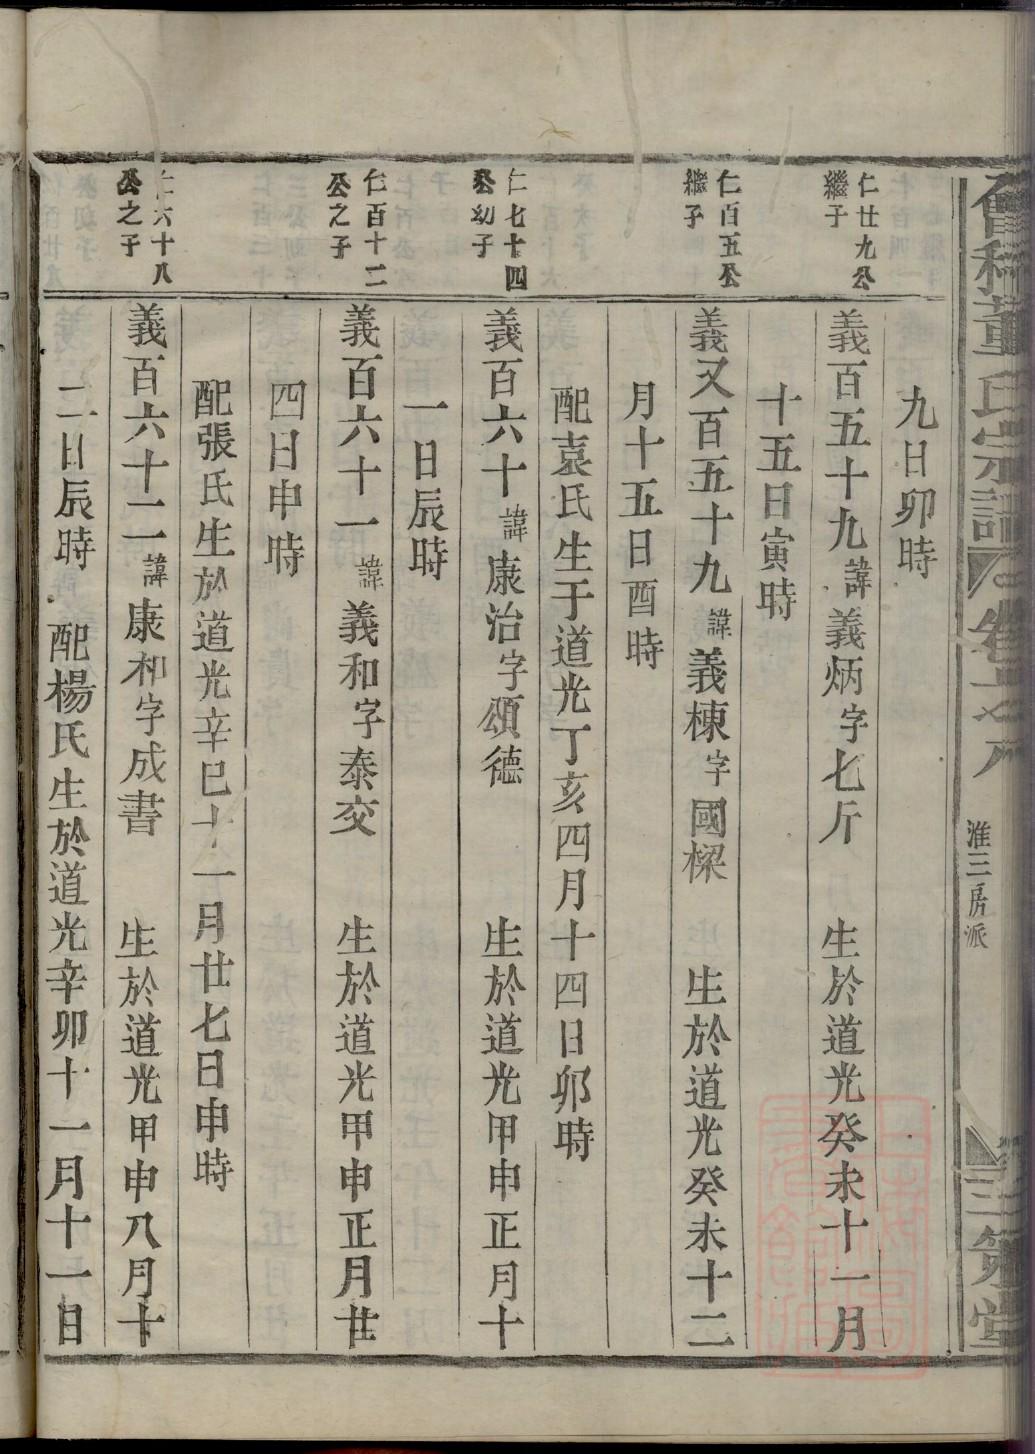 會稽董氏宗譜
淮三房派
三策堂
九日卯時
仁廿九公
繼子
義百五十九諱義炳字七斤　生於道光癸未十一月
十五日寅時
仁百五公
繼子
義又百五十九諱義棟字國樑　生於道光癸未十二
月十五日酉時
配袁氏生于道光丁亥四月十四日卯時
仁七十四
公幼子
義百六十諱康治字頌德　生於道光甲申正月十
一日辰時
仁百十二
公之子
義百六十一諱義和字泰交　生於道光甲申正月廿
四日申時
配張氏生於道光辛巳十一月廿七日申時
仁六十八
公之子
義百六十二諱康和字成書　生於道光甲申八月十
二日辰時　配楊氏生於道光辛卯十一月十一日